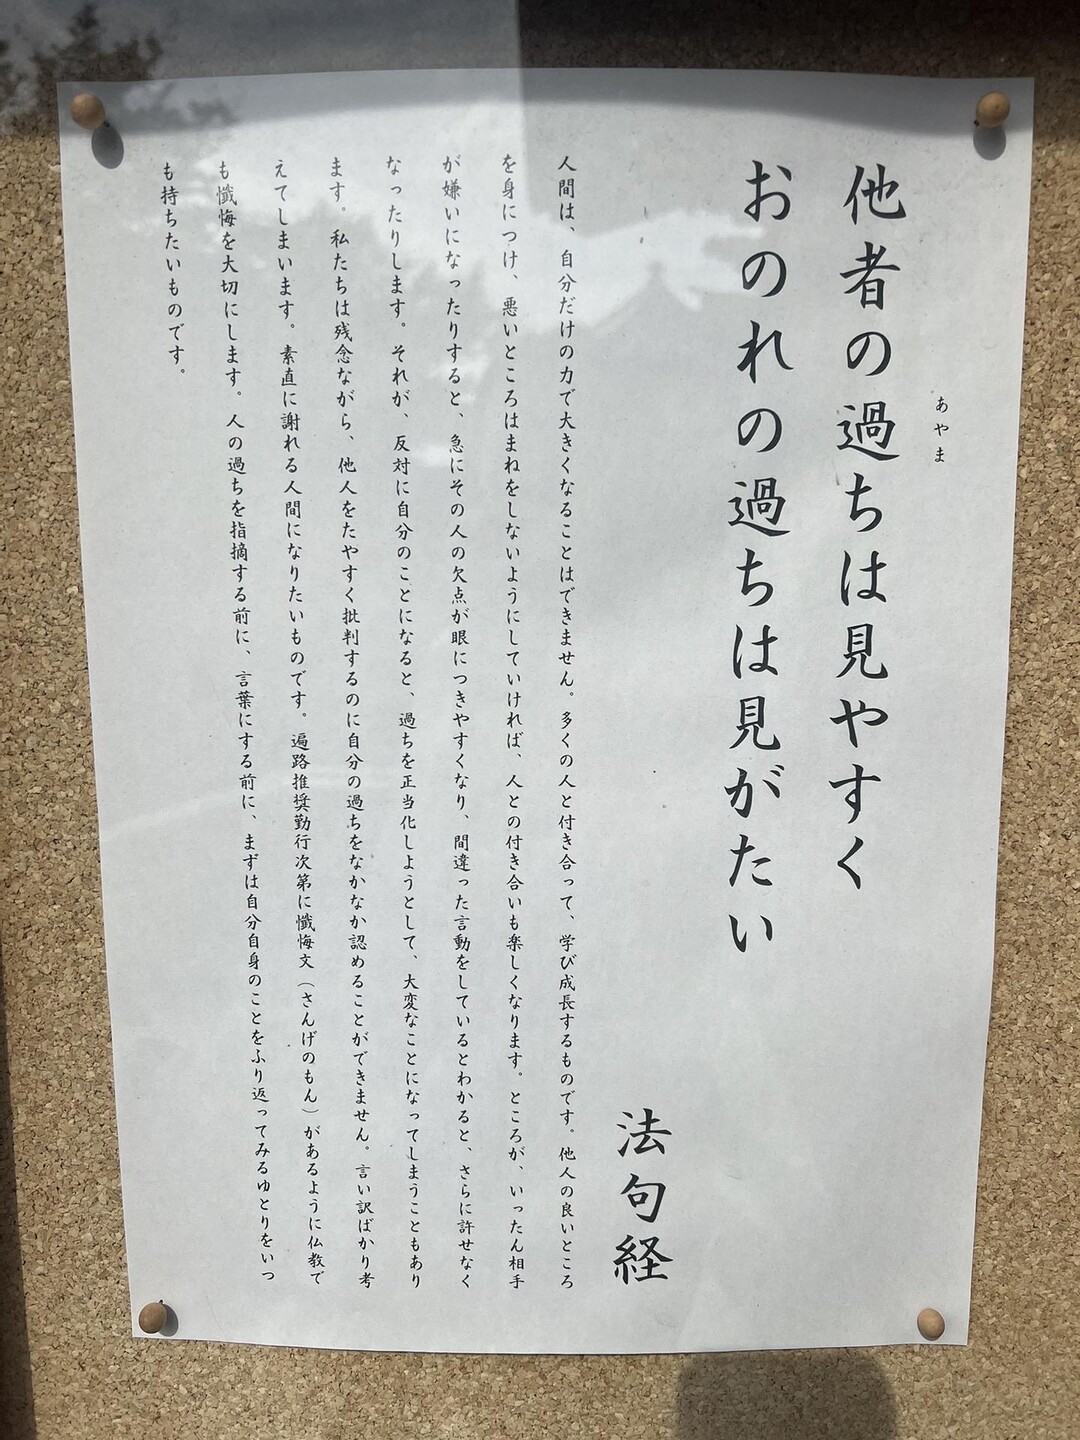 他者の過ちは見やすく
あやま
おのれの過ちは見がたい
法句経
人間は、自分だけの力で大きくなることはできません。多くの人と付き合って、学び成長するものです。他人の良いところ
を身につけ、悪いところはまねをしないようにしていければ、人との付き合いも楽しくなります。ところが、いったん相手
が嫌いになったりすると、急にその人の欠点が眼につきやすくなり、間違った言動をしているとわかると、さらに許せなく
なったりします。それが、反対に自分のことになると、過ちを正当化しようとして、大変なことになってしまうこともあり
ます。私たちは残念ながら、他人をたやすく批判するのに自分の過ちをなかなか認めることができません。言い訳ばかり考
えてしまいます。素直に謝れる人間になりたいものです。遍路推奨勤行次第に懺悔文（さんげのもん）があるように仏教で
も懺悔を大切にします。人の過ちを指摘する前に、言葉にする前に、まずは自分自身のことをふり返ってみるゆとりをいつ
も持ちたいものです。